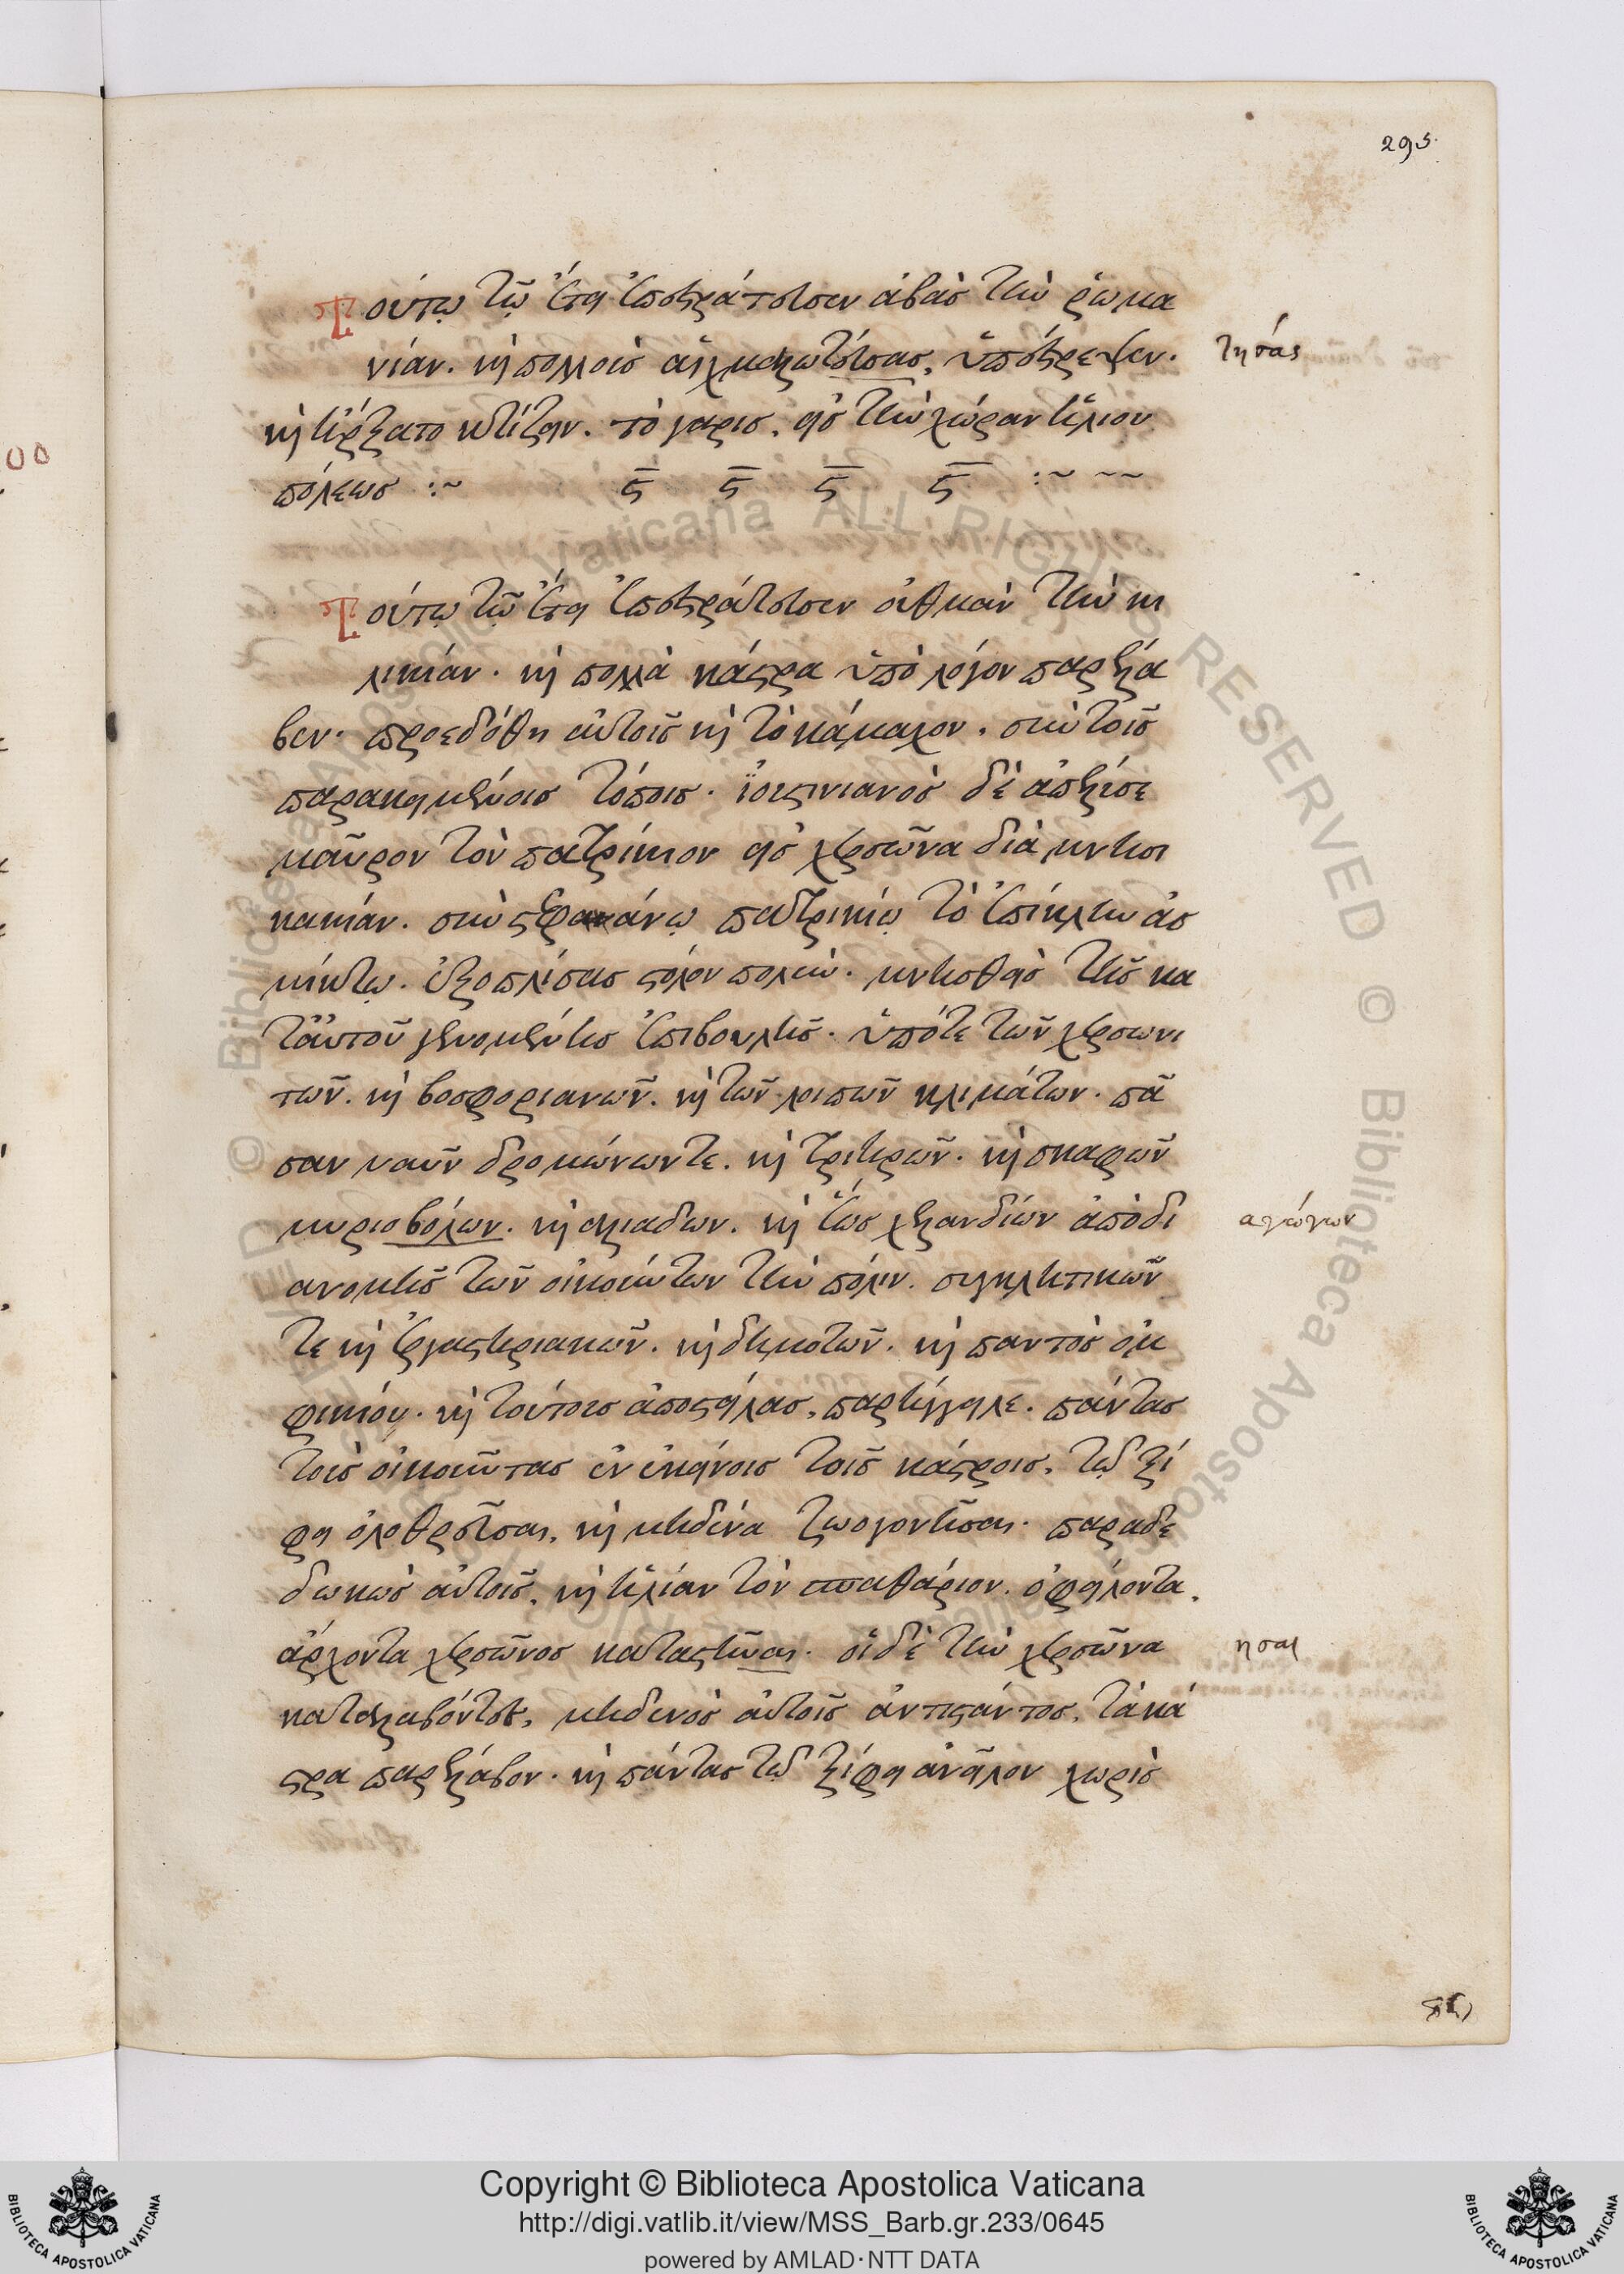 295
τούτῳ τῷ ἔτει ἐπεστράτευσεν ἀβὰς τὴν ῥωμα
νίαν. καὶ πολλοὺς αἰχμαλωτεύσας, ὑπέστρεψεν.
τησάς
καὶ ἤρξατο κτίζειν. τὸ γαρις. εἰς τὴν χώραν ἡλίου
πόλεως :~ ϛ ϛ ϛ ϛ :~ ~~
τούτῳ τῷ ἔτει ἐπεστράτευσεν οὐθμὰν τὴν κι
λικίαν. καὶ πολλὰ κάστρα ὑπὸ λόγον παρέλα
βεν. προεδόθη αὐτοῖς καὶ τὸ κάμαχον. σὺν τοῖς
παρακειμένοις τόποις. ἰουστινιανὸς δὲ ἀπέλυσε
μαῦρον τὸν πατρίκιον εἰς χερσῶνα διὰ μνησι
κακίαν. σὺν στεφάνῳ πατρικίῳ τὸ ἐπίκλην ἀσ
μίκτῳ. ἐξοπλίσας στόλον πολὺν. μνησθεὶς τῆς κα
τ᾽ αὐτοῦ γενομένης ἐπιβουλῆς. ὑπό τε τῶν χερσωνι
τῶν. καὶ βοσφοριανῶν. καὶ τῶν λοιπῶν κλιμάτων. πᾶ
σαν ναῦν δρομώνων τε. καὶ τριηρῶν. καὶ σκαφῶν
μυριοβόλων. καὶ ἁλιάδων. καὶ ἕως χελανδίων ἀπὸ δι
αγώγων
ανομῆς τῶν οἰκούντων τὴν πόλιν. συγκλητικῶν
τε καὶ ἐργαστηριακῶν. καὶ δημοτῶν. καὶ παντὸς ὀφ
φικίου. καὶ τούτους ἀποστείλας, παρήγγειλε. πάντας
τοὺς οἰκοῦντας ἐν ἐκείνοις τοῖς κάστροις, τῷ ξί
φει ὀλοθρεῦσαι, καὶ μηδένα ζωογονῆσαι. παραδε
δωκὼς αὐτοῖς, καὶ ἡλίαν τὸν σπαθάριον. ὀφείλοντα,
ἄρχοντα χερσῶνος καταστῆσαι. οἱ δὲ τὴν χερσῶνα
ησαι
καταλαβόντες, μηδενὸς αὐτοῖς ἀντιστάντος, τὰ κά
στρα παρέλαβον. καὶ πάντας τῷ ξίφει ἀνεῖλον χωρὶς
Copyright © Biblioteca Apostolica Vaticana
http://digi.vatlib.it/view/MSS_Barb.gr.233/0645
powered by AMLAD·NTT DATA
BIBLIOTECA APOSTOLICA VATICANA
BIBLIOTECA APOSTOLICA VATICANA